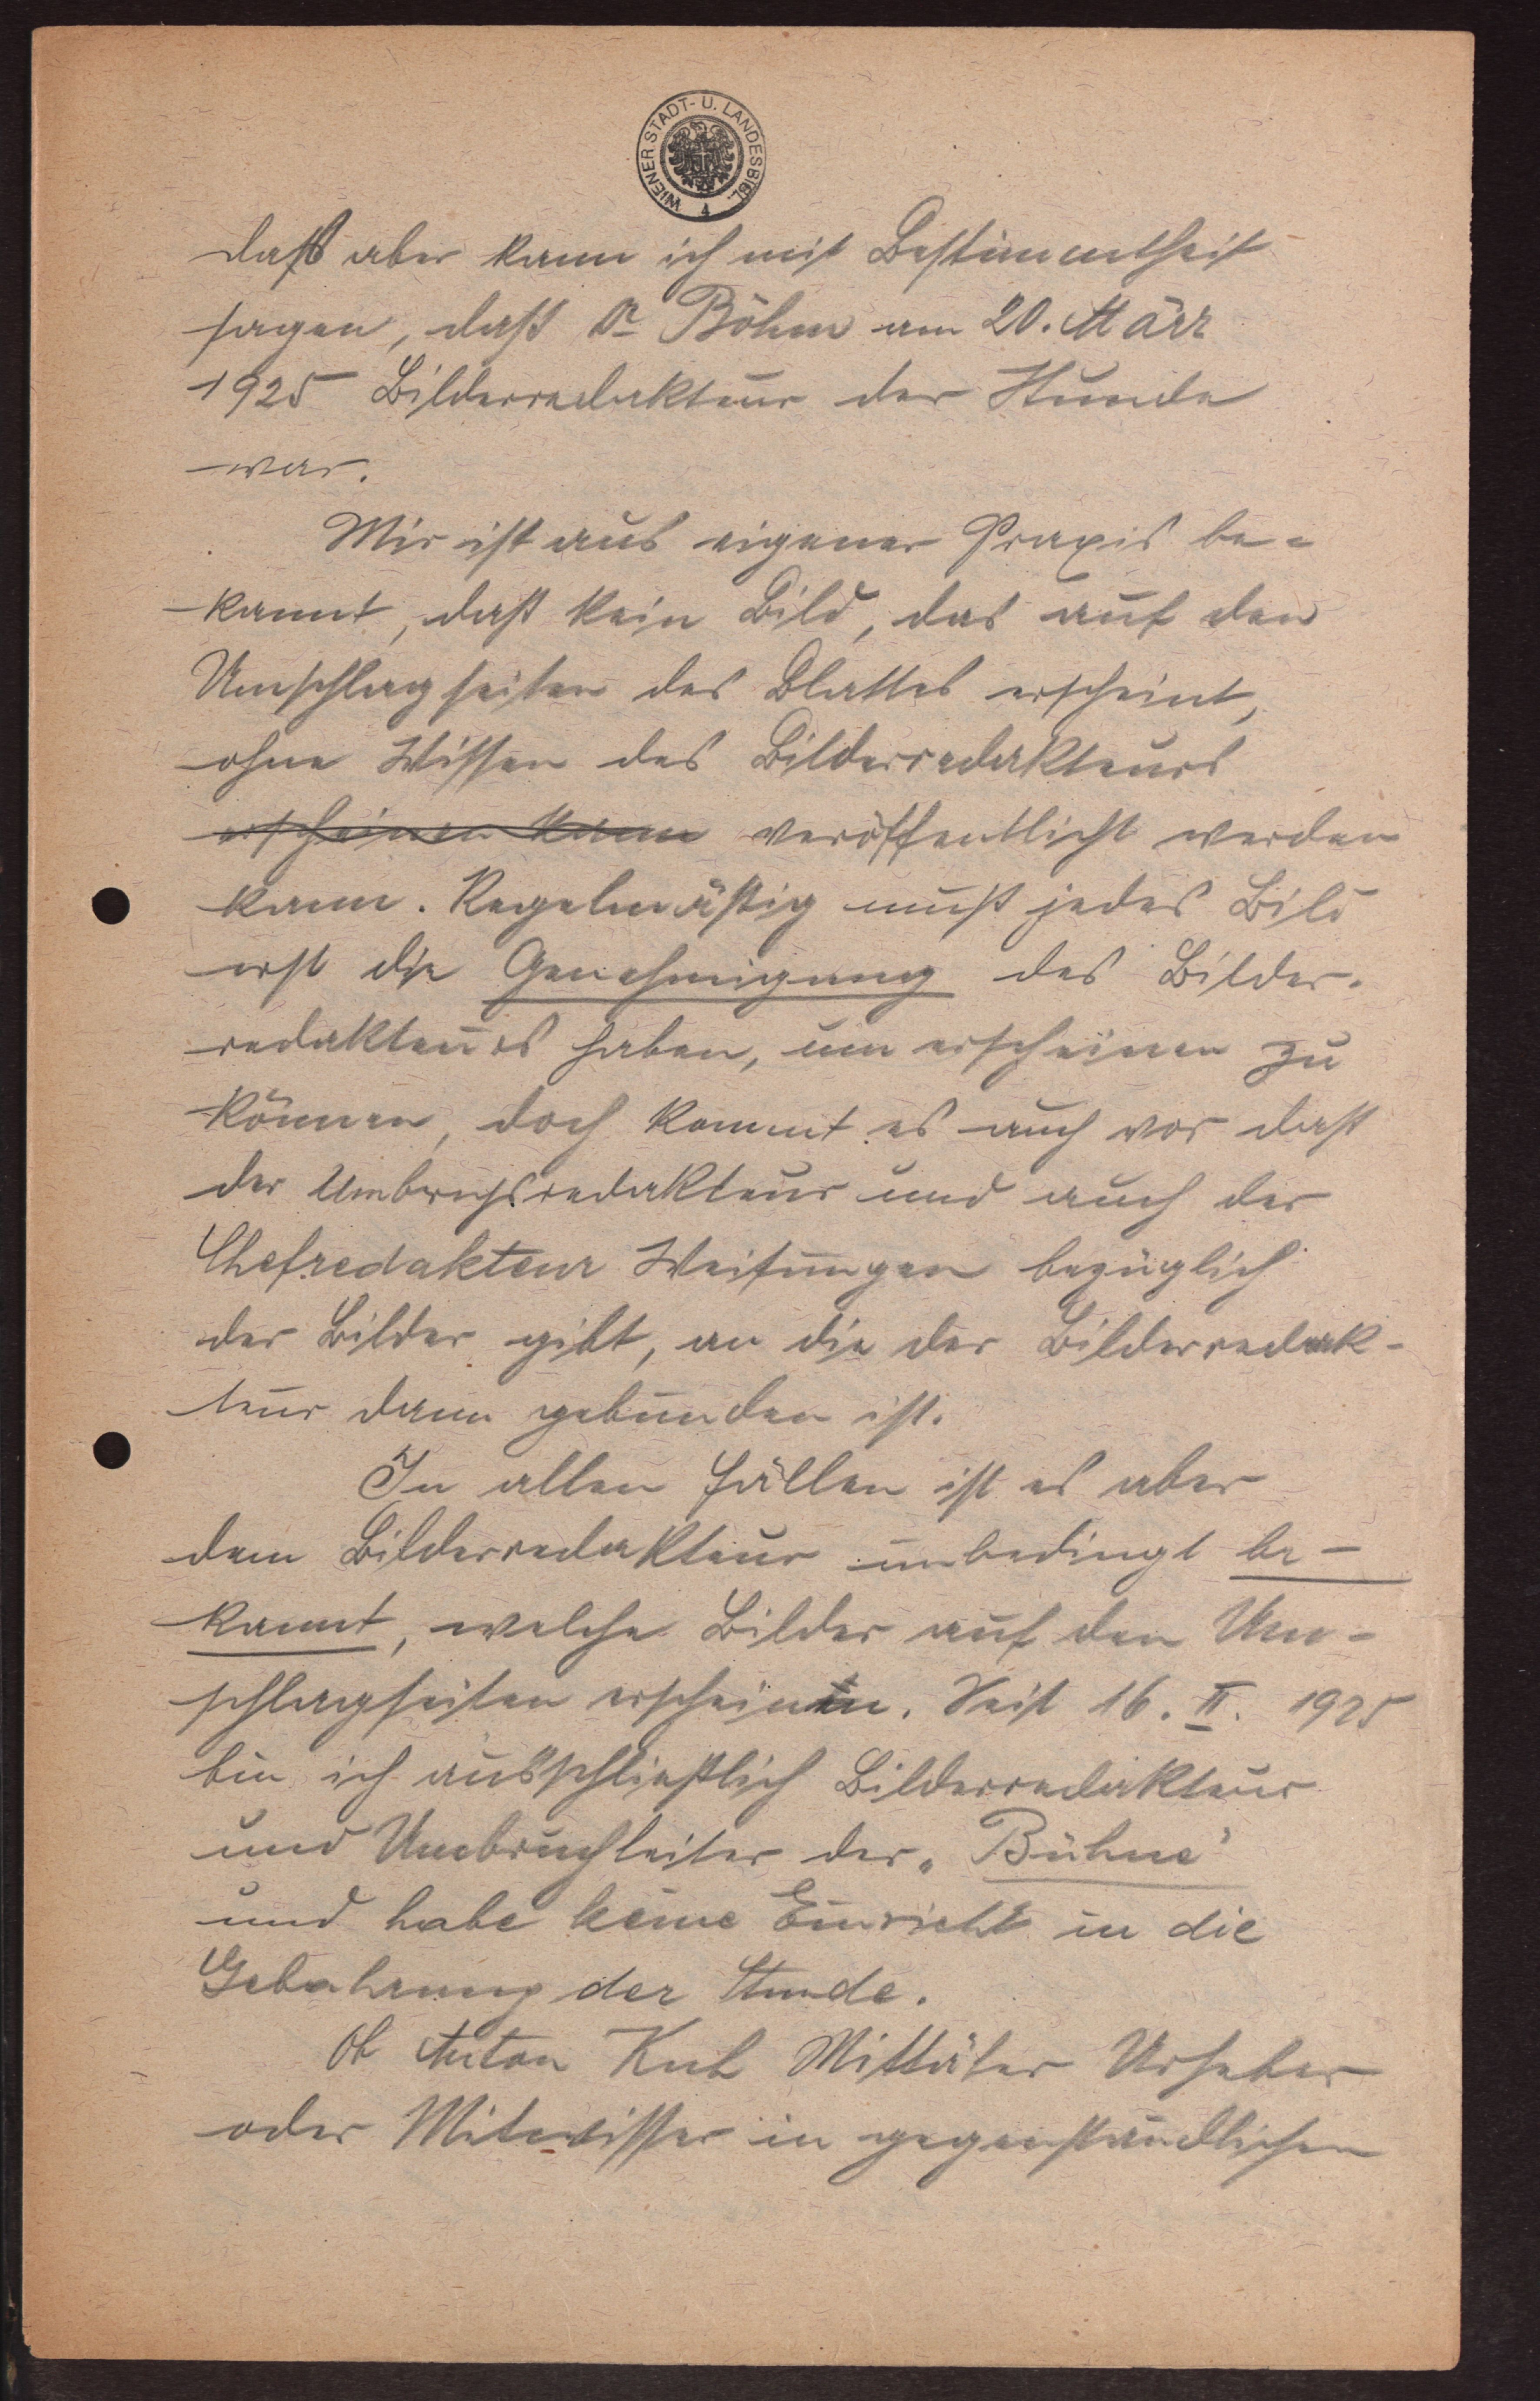 WIENER STADT- U. LANDESBIBL.
daß aber kann ich mit Bestimmtheit
sagen, daß Dr Böhm am 20. März
1925 Bilderredakteur der Stunde
war.
Mir ist aus eigener Praxis be-
kannt, daß kein Bild, das auf den
Umschlagseiten des Blattes erscheint,
ohne Wissen des Bilderredakteurs
erscheinen kann veröffentlicht werden
kann. Regelmäßig muß jedes Bild
erst die Genehmigung des Bilder-
redakteurs haben, um erscheinen zu
können, doch kommt es auch vor daß
der Umbruchsredakteur und auch der
Chefredakteur Weisungen bezüglich
der Bilder gibt, an die der Bilderredak-
teur dann gebunden ist.
In allen Fällen ist es aber
dem Bilderredakteur unbedingt be-
kannt, welche Bilder auf den Um-
schlagseiten erscheinen. Seit 16. II. 1925
bin ich ausschließlich Bilderredakteur
und Umbruchleiter der „Bühne"
und habe keine Einsicht in die
Gebahrung der Stunde.
Ob Anton Kuh Mittäter Urheber
oder Mitwisser in gegenständlichen